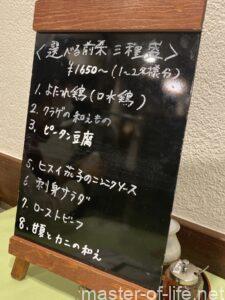 <選べる前菜三種盛>
¥1650〜(1〜2名様分)
1. よだれ鶏(口水鶏)
2. クラゲの和えもの
3. ピータン豆腐
5. ヒスイ茄子のニンニクソース
6. 刺身サラダ
7. ローストビーフ
8. 甘夏とカニの和え
master-of-life.net